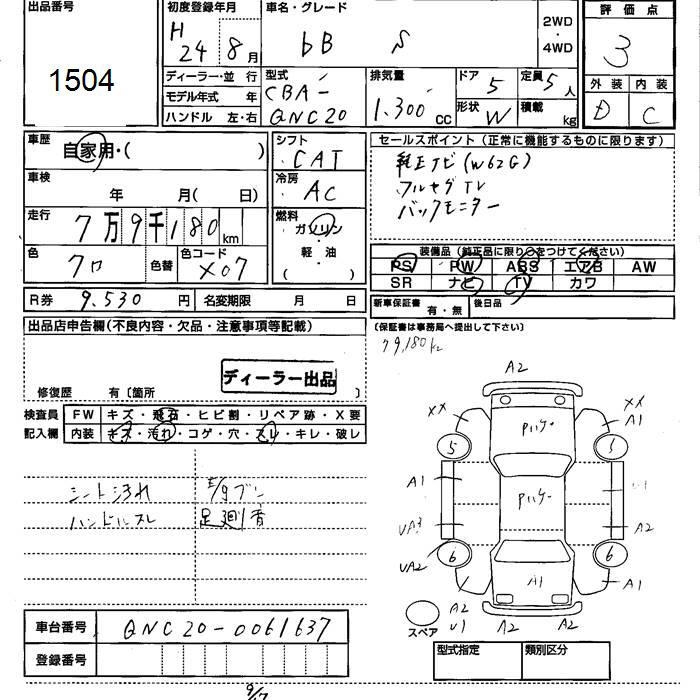 出品番号
1504
初度登録年月
H
24 8月
車名・グレード
bB S
2WD
・
4WD
評価点
3
ディーラー・並行
モデル年式 年
ハンドル 左・右
型式
CBA-
QNC20
排気量
1.300cc
ドア 5
定員 5人
形状 W
積載 kg
外装 内装
D C
車歴
自家用・( )
シフト
CAT
セールスポイント(正常に機能するものに限ります)
純正ナビ(W62G)
フルセグTV
バックモニター
車検
年 月( 日)
冷房
AC
走行
7万9千180km
燃料
ガソリン
・
軽油
( )
色
クロ
色替
色コード
X07
装備品(純正品に限り○をつけてください)
PS PW ABS エアB AW
SR ナビ TV カワ
R券 9.530円
名変期限 月 日
新車保証書
有・無
後日品
(保証書は事務局へ提出して下さい)
79,180km
出品店申告欄(不良内容・欠品・注意事項等記載)
ディーラー出品
修復歴 有〔箇所 〕
検査員
記入欄
FW キズ・飛石・ヒビ割・リペア跡・X要
内装 キズ・汚れ・コゲ・穴・スレ・キレ・破レ
シート汚れ
ハンドルスレ
足廻り音
A2
XX
XX
A1
5
5
A1
UA3
A2
UA2
6
6
A1
A1
A2
U1
A2
A2
スペア
車台番号 QNC20-0061637
登録番号
型式指定 類別区分